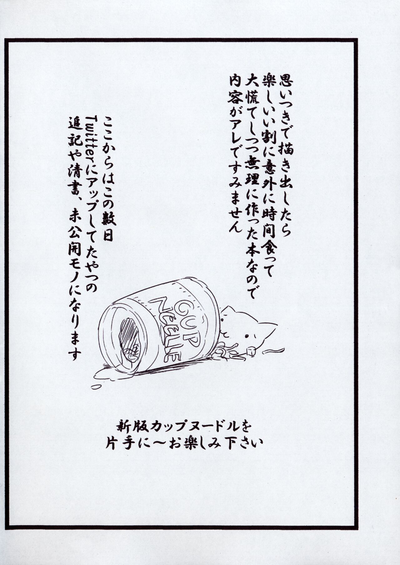 思いつきで描き出したら
楽しいい割に意外に時間食って
大慌てしつつ無理に作った本なので
内容がアレですみません
ここからはこの数日
Twitterにアップしてたやつの
追記や清書、未公開モノになります
CUP
NeeLLE
新版カップヌードルを
片手に〜お楽しみ下さい